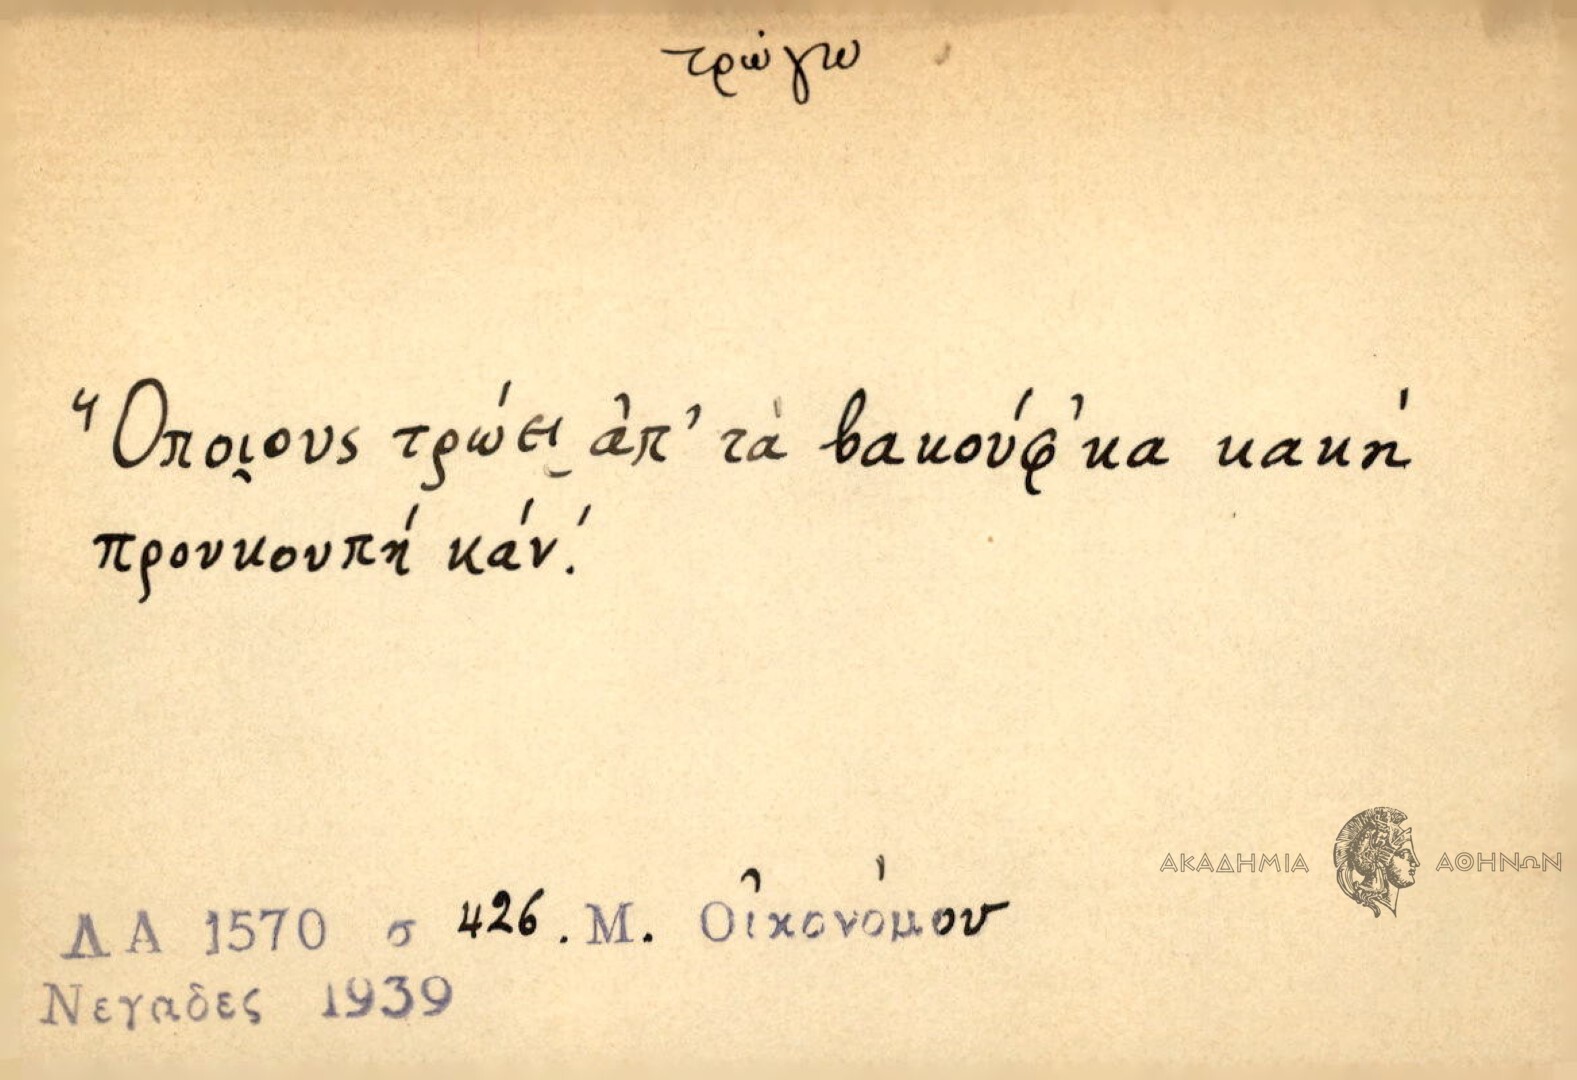 τρώγω
Ὅποι̯ους τρώει̯ ἀπ’ τὰ βακούφ’κα κακή
προυκουπή κάν’.
ΛΑ 1570 σ 426. Μ. Οἰκονόμου
Νεγαδες 1939
ΑΚΑΔΗΜΙΑ ΑΘΗΝΩΝ